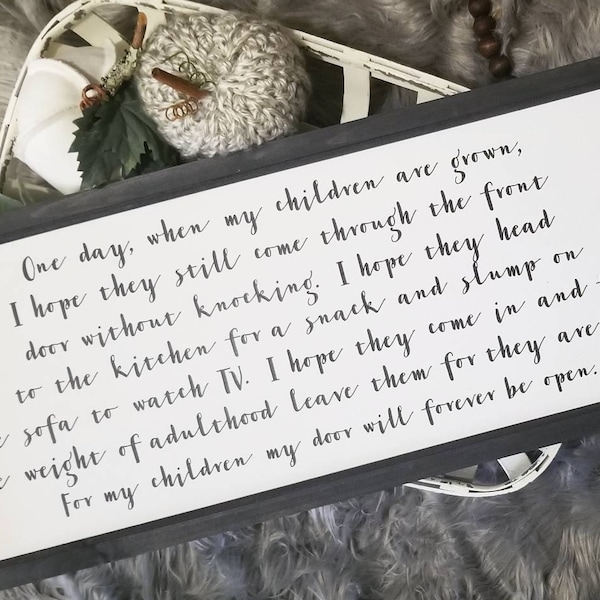 One day, when my children are grown,
I hope they still come through the front
door without knocking. I hope they head
to the kitchen for a snack and slump on
sofa to watch TV. I hope they come in and
weight of adulthood leave them for they are
For my children my door will forever be open.